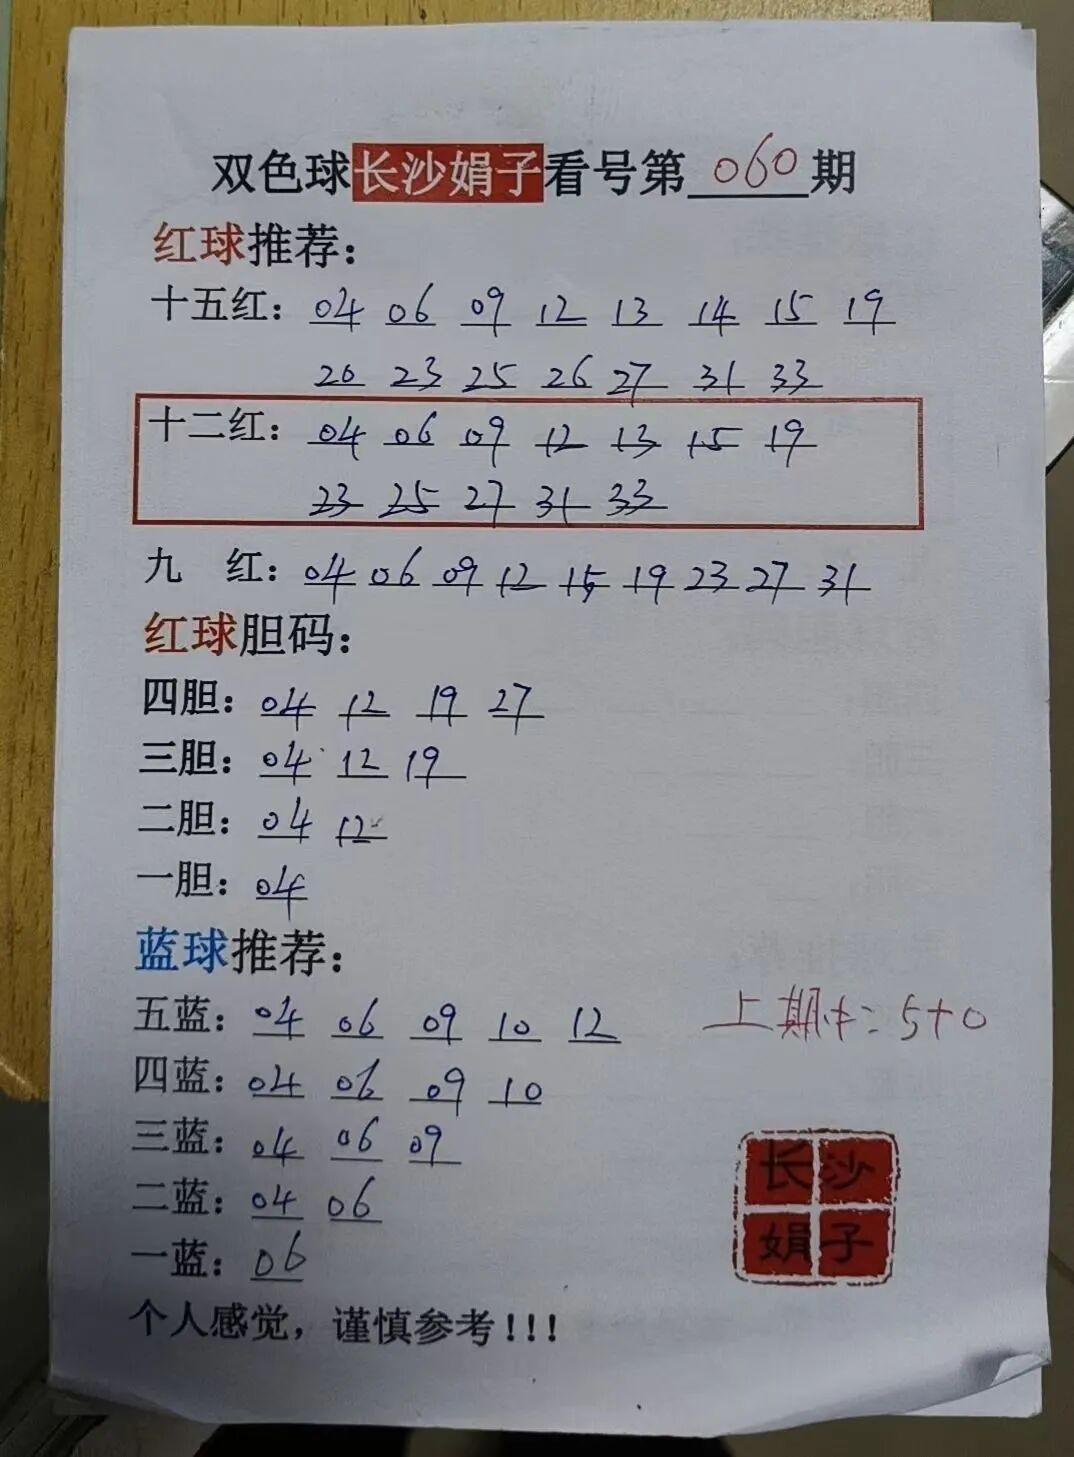 双色球长沙娟子看号第060期
红球推荐：
十五红：04 06 09 12 13 14 15 19
20 23 25 26 27 31 33
十二红：04 06 09 12 13 15 19
23 25 27 31 33
九 红：04 06 09 12 15 19 23 27 31
红球胆码：
四胆：04 12 19 27
三胆：04 12 19
二胆：04 12
一胆：04
蓝球推荐：
五蓝：04 06 09 10 12
上期中：5+0
四蓝：04 06 09 10
三蓝：04 06 09
二蓝：04 06
一蓝：06
长沙
娟子
个人感觉，谨慎参考！！！